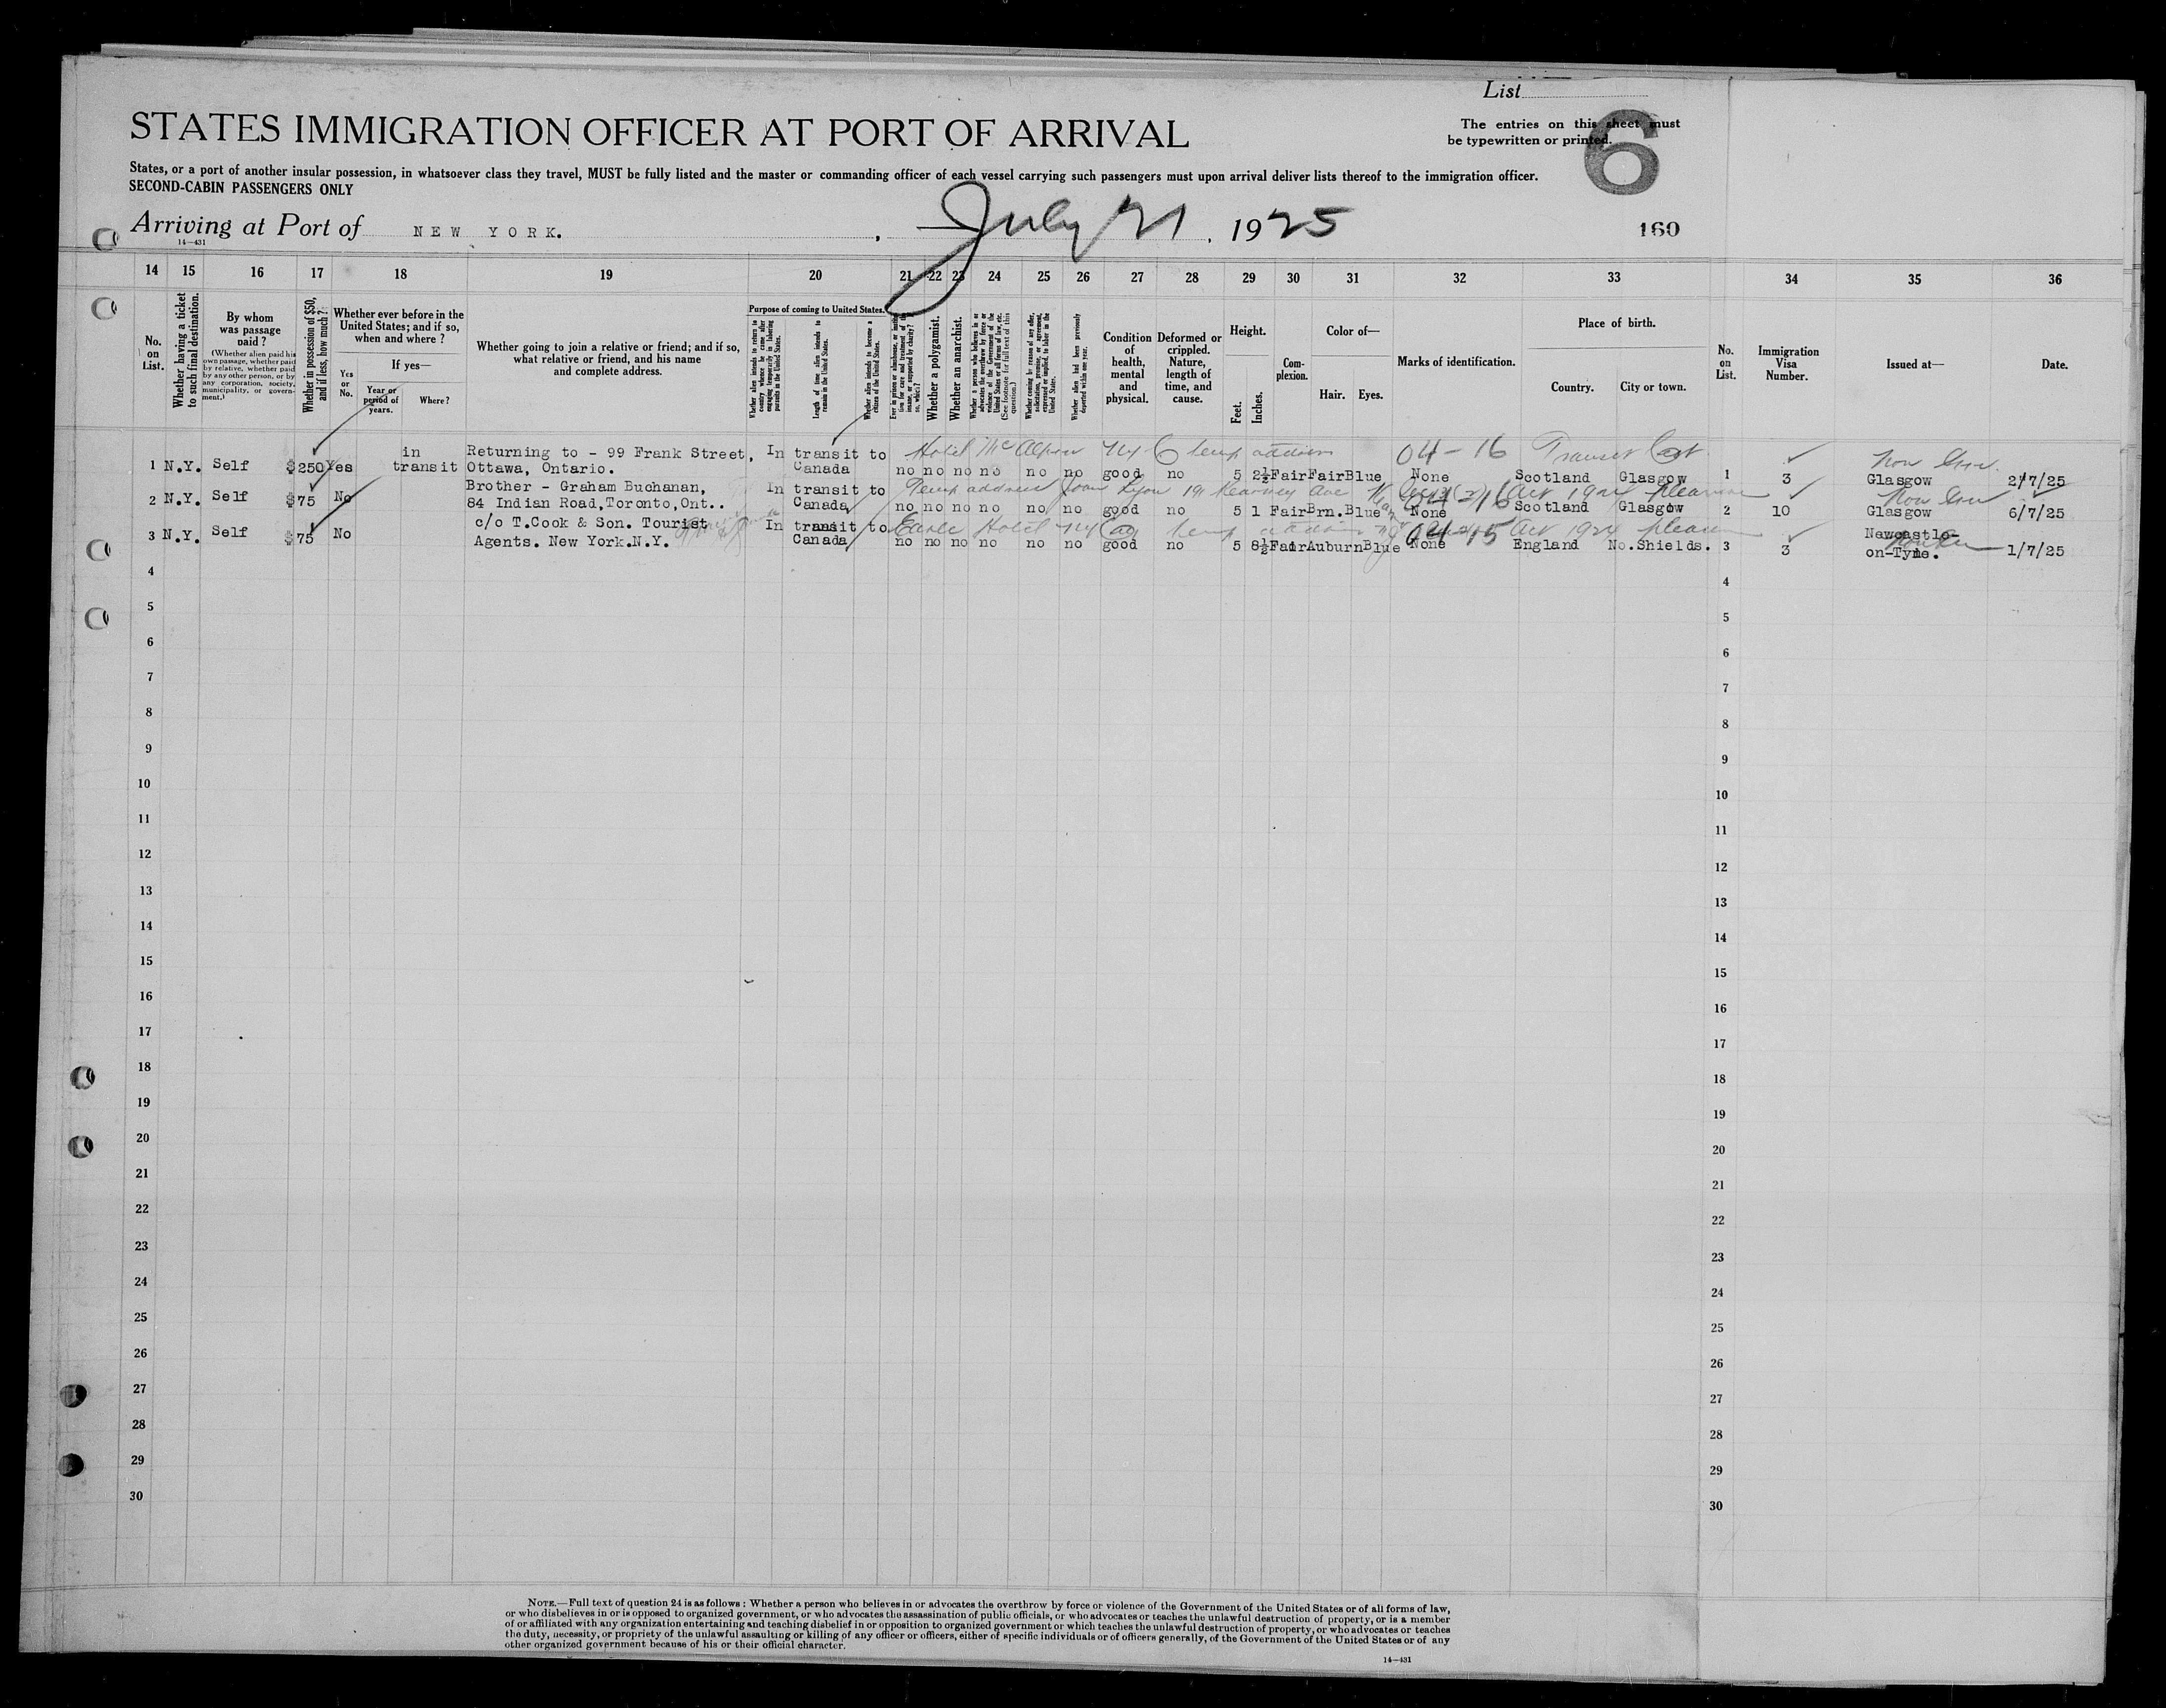 List
6
STATES IMMIGRATION OFFICER AT PORT OF ARRIVAL
The entries on this sheet must
be typewritten or printed.
States, or a port of another insular possession, in whatsoever class they travel, MUST be fully listed and the master or commanding officer of each vessel carrying such passengers must upon arrival deliver lists thereof to the immigration officer.
SECOND-CABIN PASSENGERS ONLY
Arriving at Port of NEW YORK. , July 21, 1925
160
14—431
14 15 16 17 18 19 20 21 22 23 24 25 26 27 28 29 30 31 32 33 34 35 36
No. on List.
Whether having a ticket to such final destination.
By whom was passage paid?
(Whether alien paid his own passage, whether paid by relative, whether paid by any other person, or by any corporation, society, municipality, or government.)
Whether in possession of $50, and if less, how much?
Whether ever before in the United States; and if so, when and where?
Yes or No.
If yes—
Year or period of years.
Where?
Whether going to join a relative or friend; and if so, what relative or friend, and his name and complete address.
Purpose of coming to United States.
Whether alien intends to return to country whence he came after engaging temporarily in laboring pursuits in the United States.
Length of time alien intends to remain in the United States.
Whether alien intends to become a citizen of the United States.
Whether a polygamist.
Whether an anarchist.
Whether alien had been previously deported within one year.
Condition of health, mental and physical.
Deformed or crippled. Nature, length of time, and cause.
Height.
Feet.
Inches.
Complexion.
Color of—
Hair. Eyes.
Marks of identification.
Place of birth.
Country. City or town.
No. on List.
Immigration Visa Number.
Issued at—
Date.
Hotel McAlpin NYC temp address 04-16 Transit Cert
1 N.Y. Self $250 Yes in transit Returning to - 99 Frank Street, Ottawa, Ontario. In transit to Canada no no no no no no good no 5 2½ Fair Fair Blue None Scotland Glasgow 1 3 Glasgow 2/7/25
Temp address
2 N.Y. Self $75 No Brother - Graham Buchanan, 84 Indian Road, Toronto, Ont.. In transit to Canada no no no no no no good no 5 1 Fair Brn. Blue None Scotland Glasgow 2 10 Glasgow 6/7/25
Earle Hotel
3 N.Y. Self $75 No c/o T.Cook & Son. Tourist Agents. New York.N.Y. In transit to Canada no no no no no no good no 5 8½ Fair Auburn Blue None England No.Shields. 3 3 Newcastle-on-Tyne. 1/7/25
4 4
5 5
6 6
7 7
8 8
9 9
10 10
11 11
12 12
13 13
14 14
15 15
16 16
17 17
18 18
19 19
20 20
21 21
22 22
23 23
24 24
25 25
26 26
27 27
28 28
29 29
30 30
NOTE.—Full text of question 24 is as follows: Whether a person who believes in or advocates the overthrow by force or violence of the Government of the United States or of all forms of law,
or who disbelieves in or is opposed to organized government, or who advocates the assassination of public officials, or who advocates or teaches the unlawful destruction of property, or is a member
of or affiliated with any organization entertaining and teaching disbelief in or opposition to organized government or which teaches the unlawful destruction of property, or who advocates or teaches
the duty, necessity, or propriety of the unlawful assaulting or killing of any officer or officers, either of specific individuals or of officers generally, of the Government of the United States or of any
other organized government because of his or their official character.
14—431